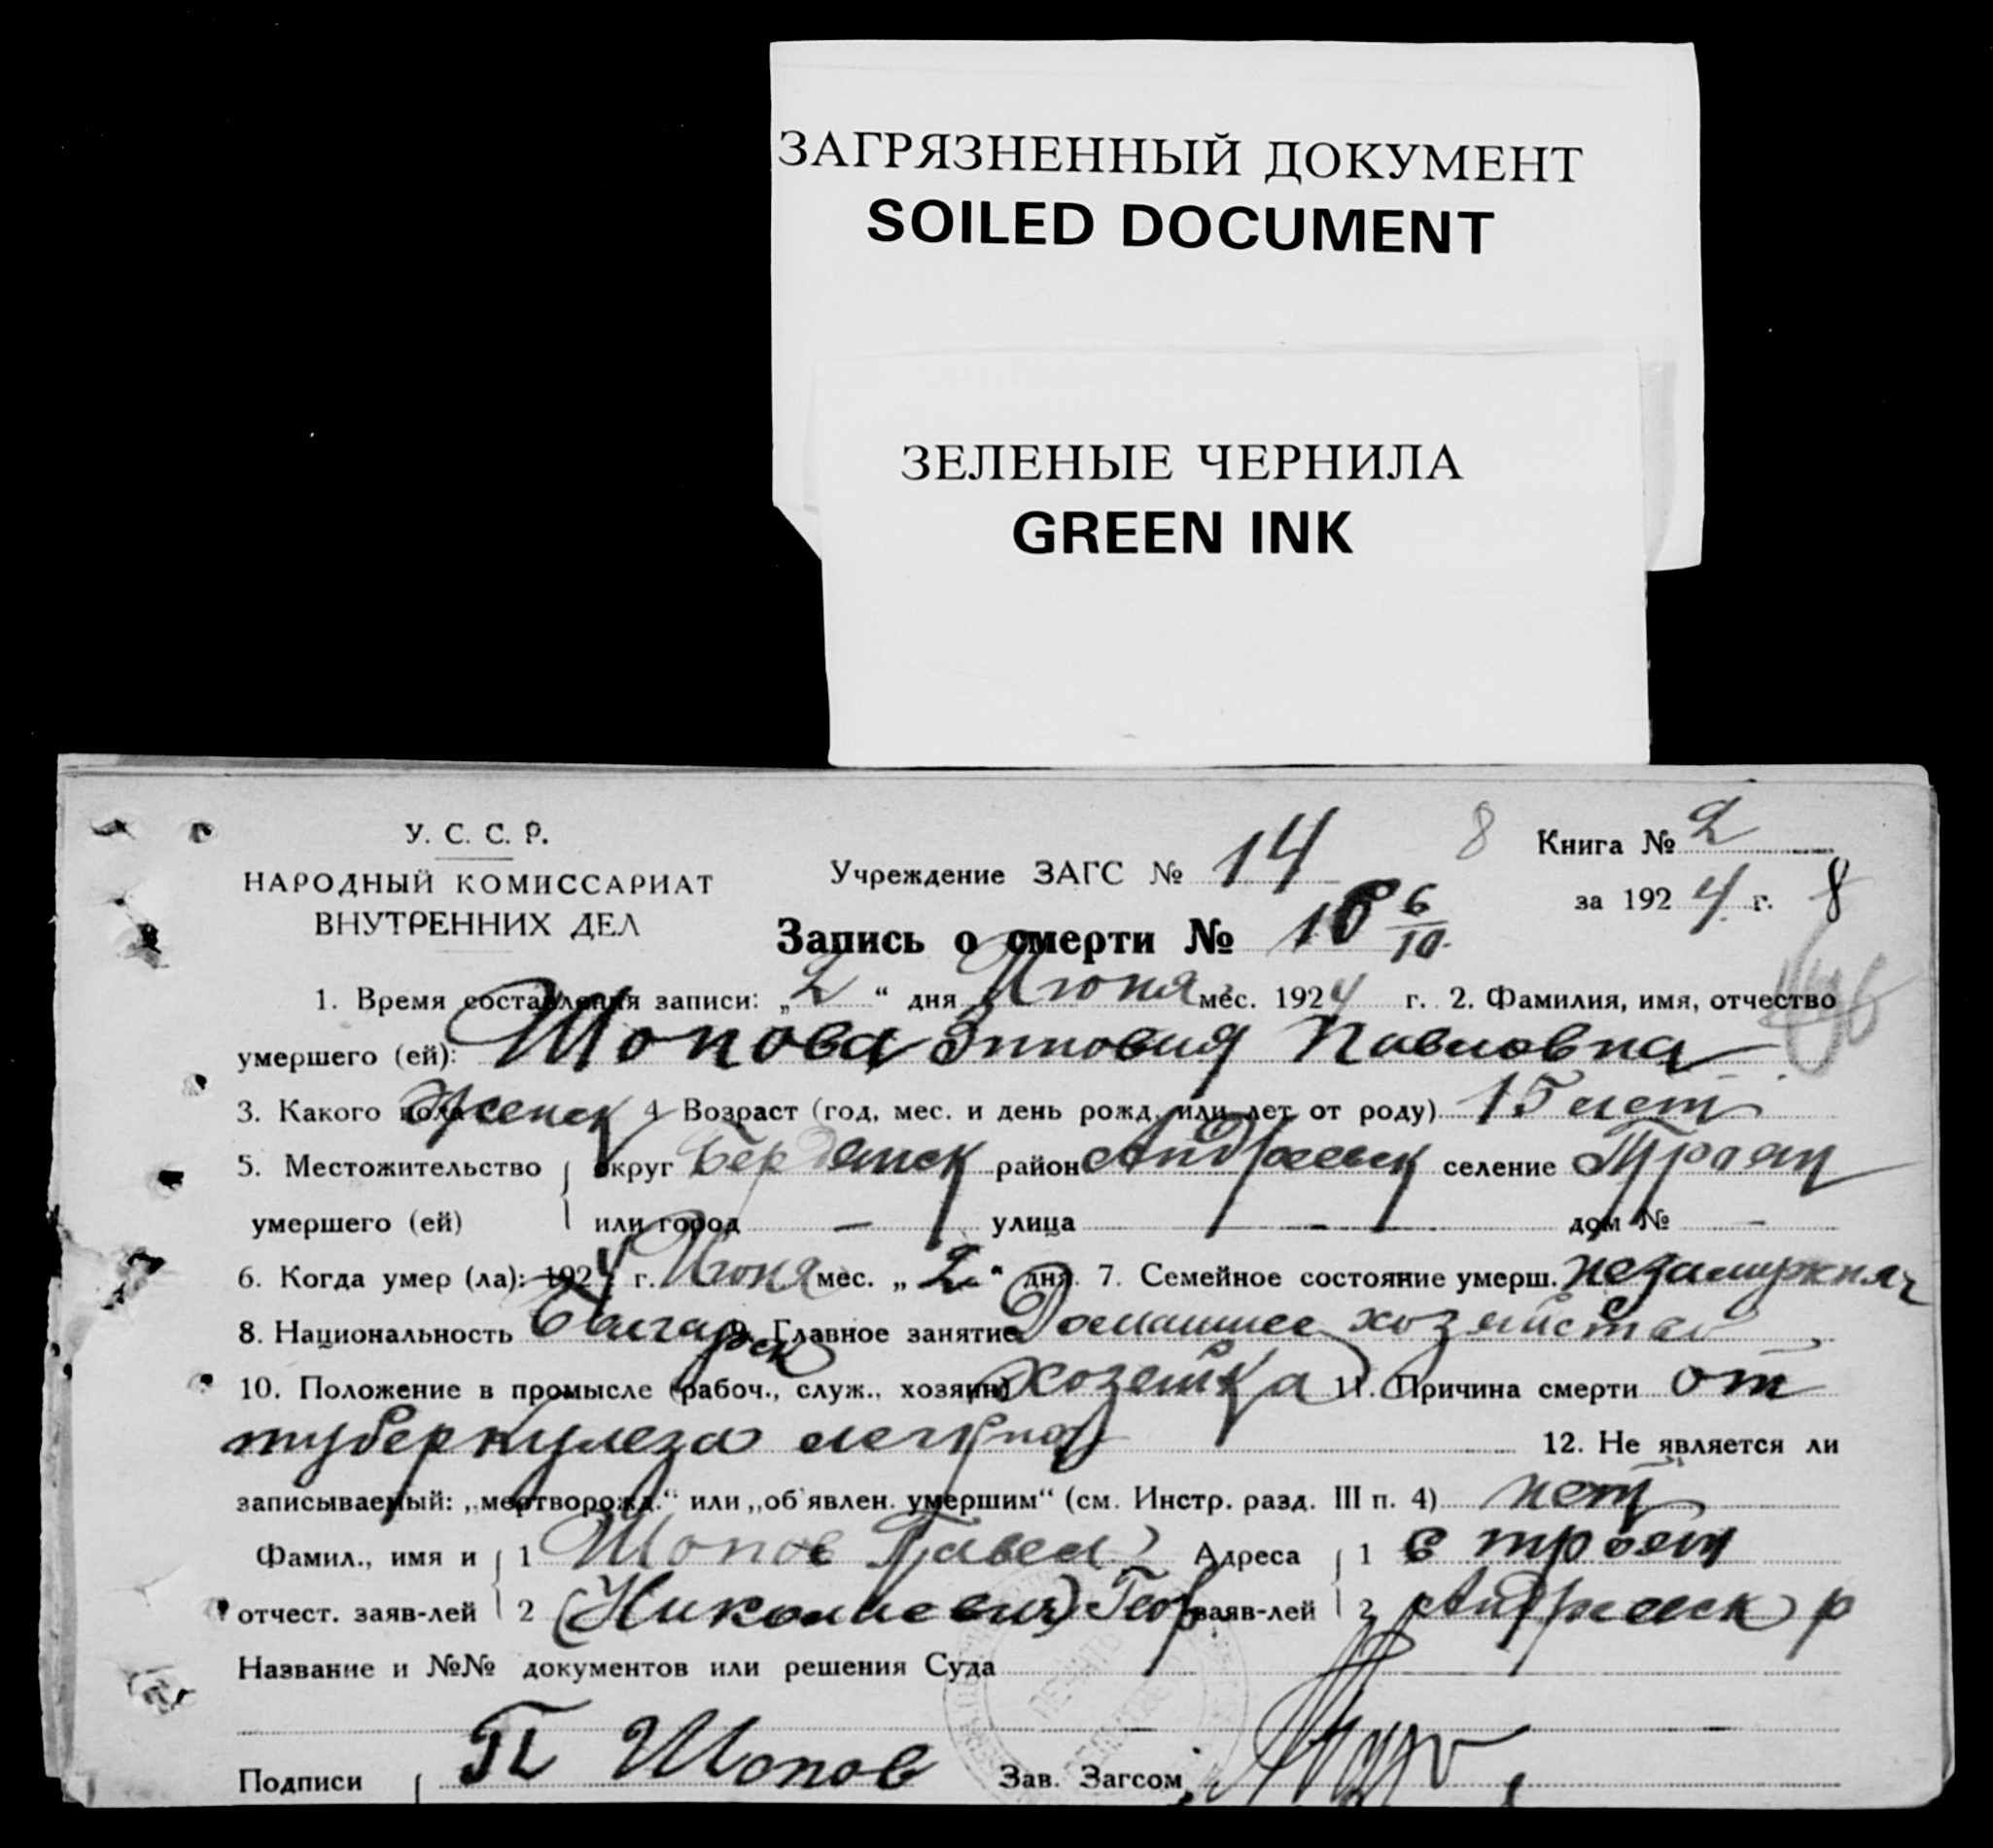 ЗАГРЯЗНЕННЫЙ ДОКУМЕНТ
SOILED DOCUMENT
ЗЕЛЕНЫЕ ЧЕРНИЛА
GREEN INK
У. С. С. Р.
НАРОДНЫЙ КОМИССАРИАТ
ВНУТРЕННИХ ДЕЛ
Учреждение ЗАГС № 14
8 Книга № 2
за 1924 г. 8
Запись о смерти № 10 6/10
1. Время составления записи: „2“ дня Июня мес. 1924 г. 2. Фамилия, имя, отчество
умершего (ей): Шопова Зиновия Павловна
3. Какого пола женск 4 Возраст (год, мес. и день рожд. или лет от роду) 15 лет
5. Местожительство округ Бердянск район Андреевск селение Троян
умершего (ей) или город — улица — дом № —
6. Когда умер (ла): 1924 г. Июня мес. „2“ дня. 7. Семейное состояние умерш. незамужняя
8. Национальность Болгарск 9. Главное занятие Домашнее хозяйство
10. Положение в промысле (рабоч., служ., хозяин) хозяйка 11. Причина смерти от
туберкулеза легких
12. Не является ли
записываемый: „мертворожд.“ или „об'явлен. умершим“ (см. Инстр. разд. III п. 4) нет
Фамил., имя и 1 Шопов Павел Адреса 1 с Троян
отчест. заяв-лей 2 (Николаевич) Геор заяв-лей 2 Андреевск р
Название и №№ документов или решения Суда
Подписи П Шопов Зав. Загсом